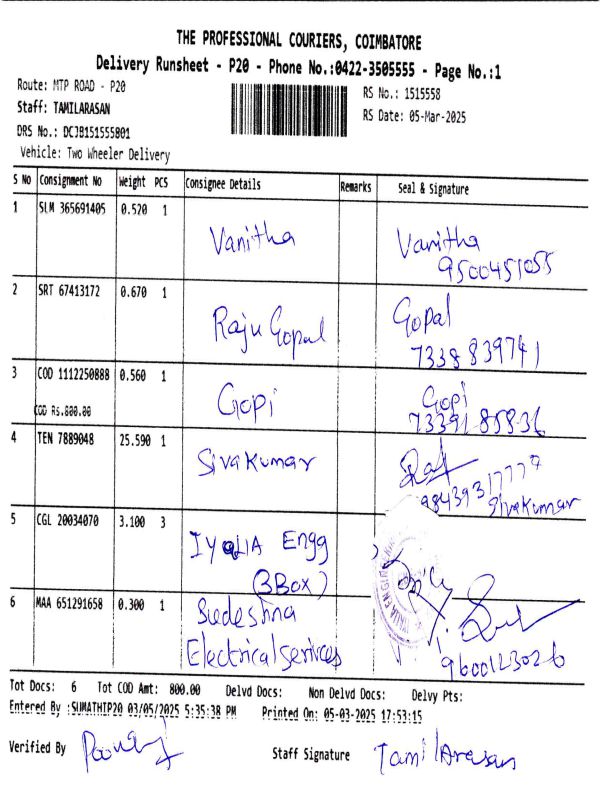 THE PROFESSIONAL COURIERS, COIMBATORE
Delivery Runsheet - P20 - Phone No.:0422-3505555 - Page No.:1
Route: MTP ROAD - P20
RS No.: 1515558
Staff: TAMILARASAN
RS Date: 05-Mar-2025
DRS No.: DCJB151555801
Vehicle: Two Wheeler Delivery
S No Consignment No Weight PCS Consignee Details Remarks Seal & Signature
1 SLM 365691405 0.520 1 Vanitha Vanitha
9500451055
2 SRT 67413172 0.670 1 Raju Gopal Gopal
7338839741
3 COD 1112250888 0.560 1 Gopi Gopi
COD Rs.800.00 7339185836
4 TEN 7889048 25.590 1 Sivakumar
9843931777
Sivakumar
5 CGL 20034070 3.100 3 Engg
(3Box)
6 MAA 651291658 0.300 1 Sudeshna
Electrical Services 9600123026
Tot Docs: 6 Tot COD Amt: 800.00 Delvd Docs: Non Delvd Docs: Delvy Pts:
Entered By :SUMATHIP20 03/05/2025 5:35:38 PM Printed On: 05-03-2025 17:53:15
Verified By Staff Signature TamilArasan